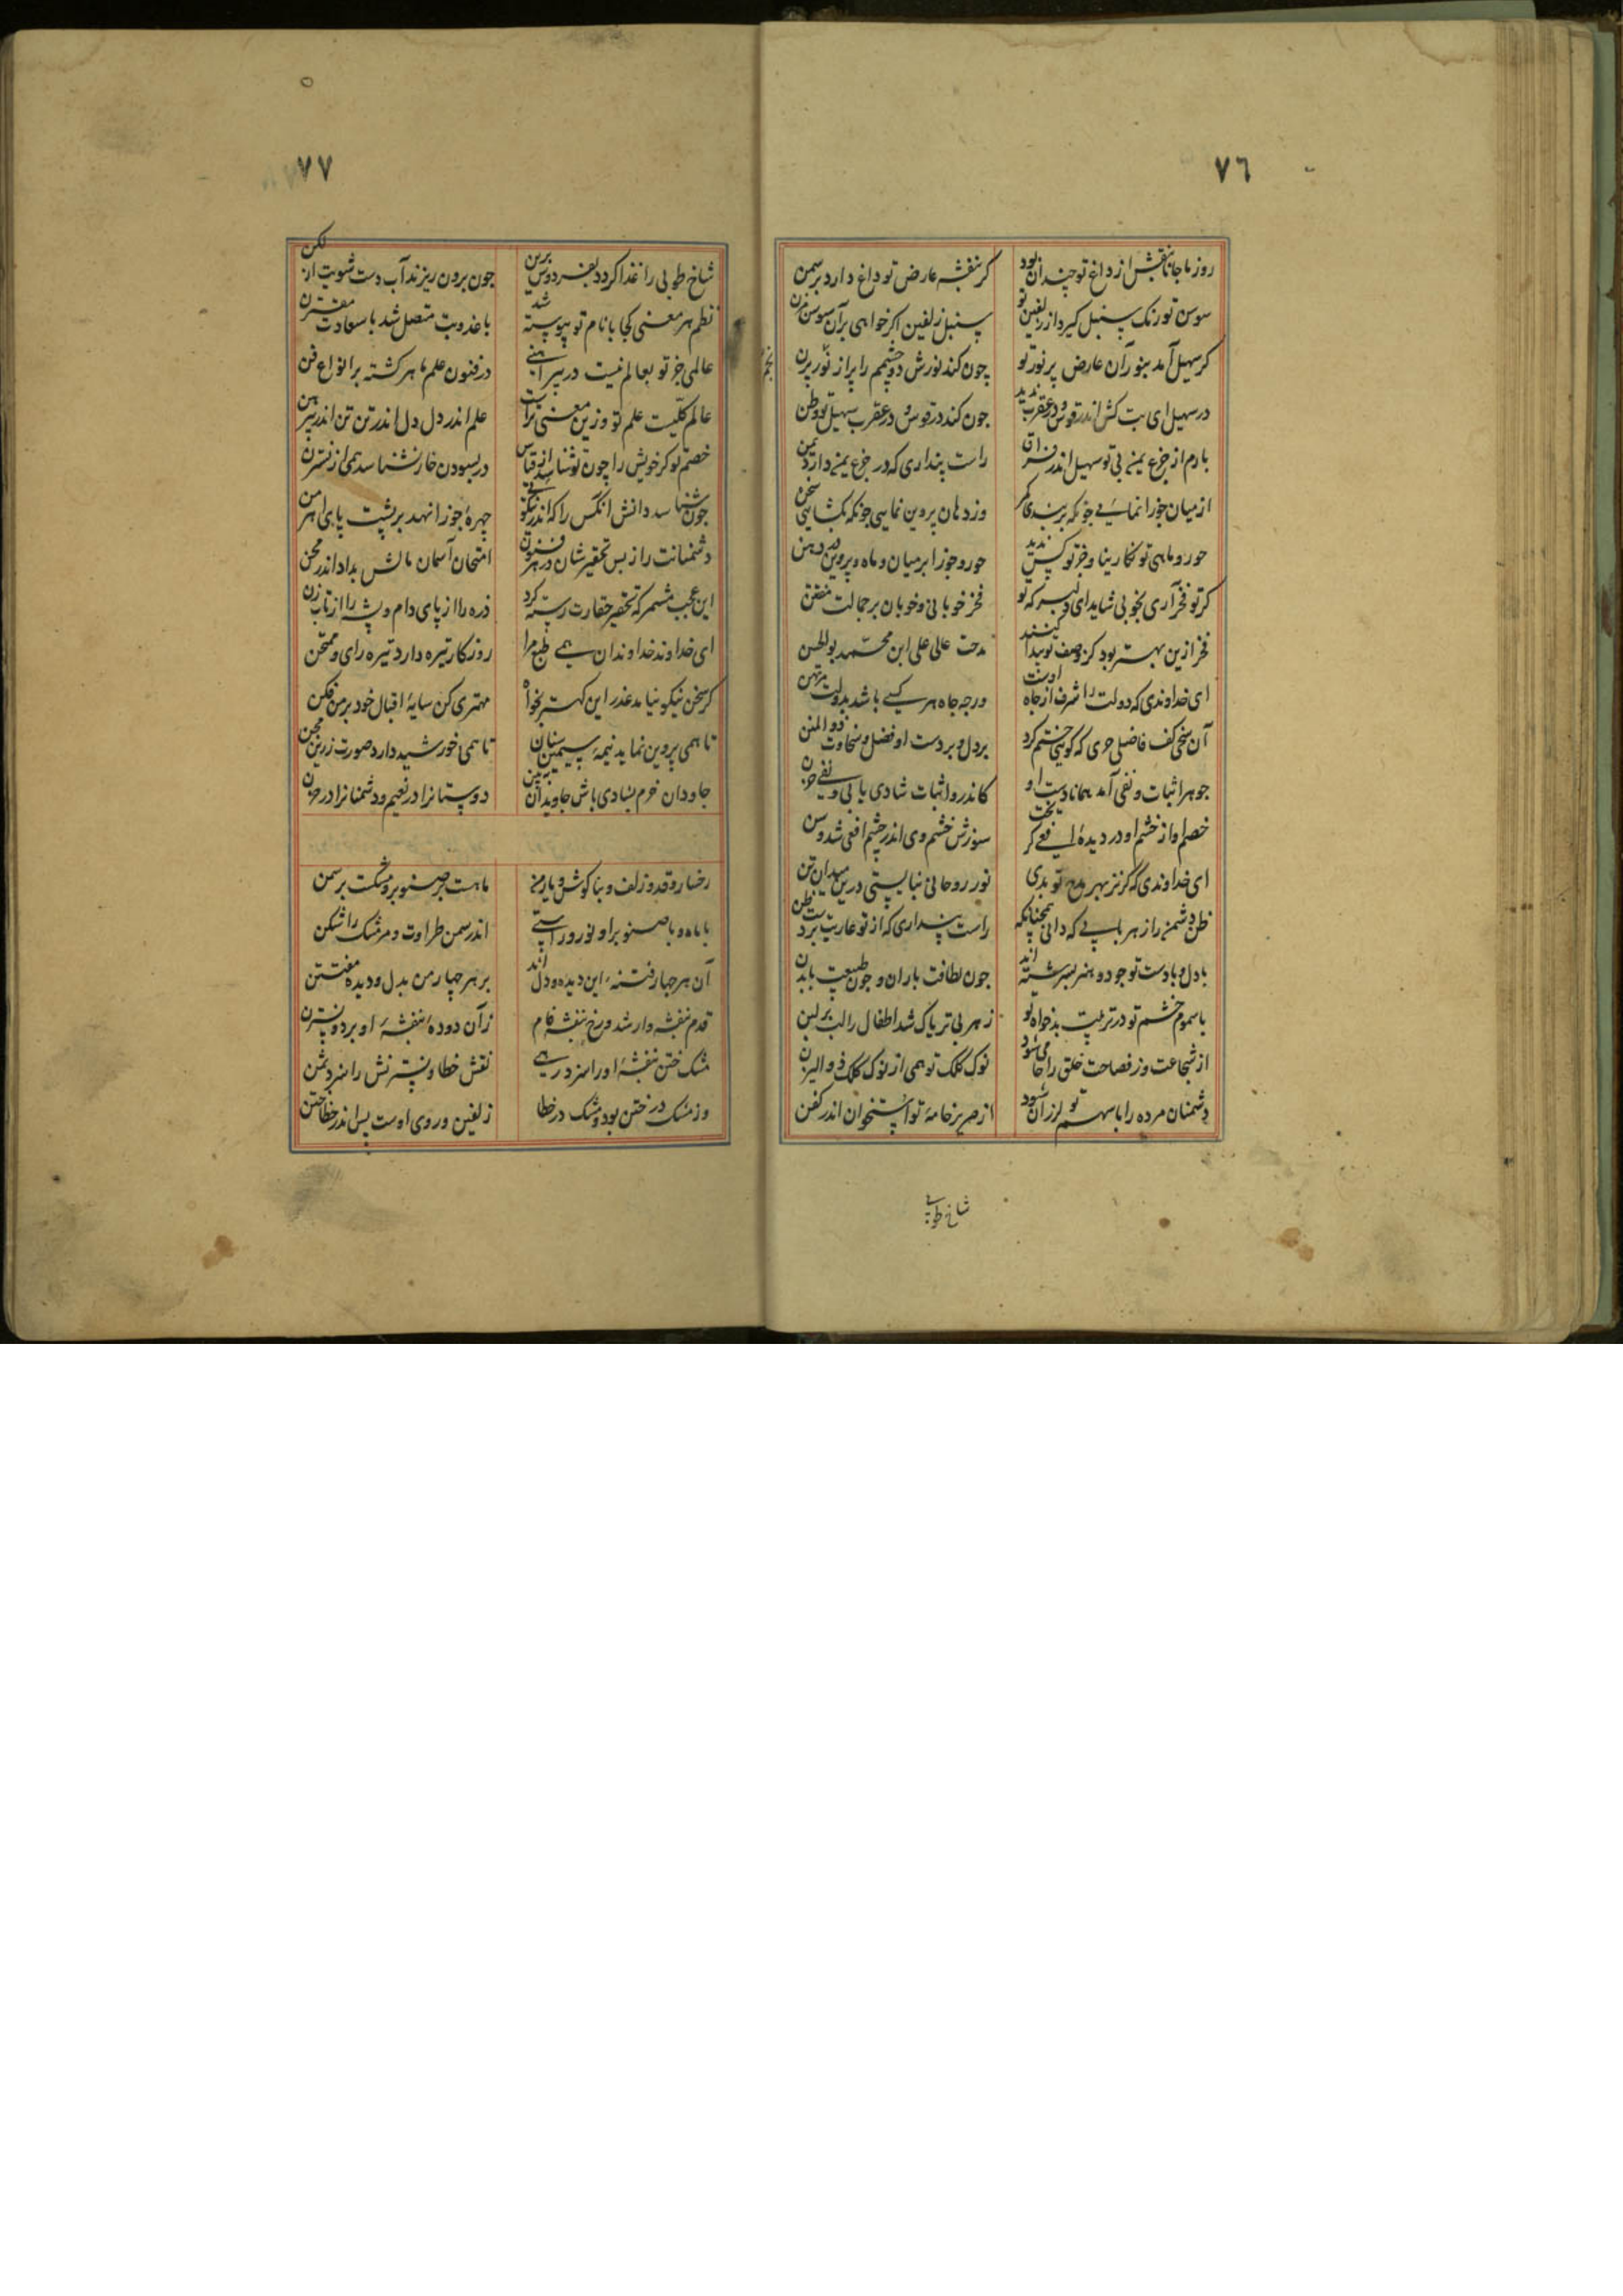 ٧٦
روز ما جانا بنفش از داغ تو چندان بود گر بنفشه عارض تو داغ دارد بر سمن
سوسن تو رنک سنبل کیرد از زلفین تو سنبل زلفین اکر خواهی بر آن سوسن مزن
کر سهیل آمد بنور آن عارض پر نور تو چون کند نورش دو چشمم را پر از نور پرن
در سهیل ای بت کش اندر قوس و در عقرب ندید جون کند در قوس و در عقرب سهیل تو وطن
بارم از جزع یمنی بی تو سهیل اندر فراق راست پنداری که در جزع یمنی دارد یمن
از میان جوزا نمائی جو که بر بندی کمر وز دهان پروین نمایی جونکه بکشایی سخن
حور و ماهی تو نکارینا و جز تو کس ندید حور و جوزا بر میان و ماه و پروین در دهن
کر تو فخر آری بخوبی شاید ای دلبر که تو فخر خوبانی و خوبان بر جمالت مفتتن
فخر ازین بهتر بود کز وصف تو پیدا کنند مدحت عالی علی ابن محمد بوالحسن
ای خداوندی که دولت را شرف از جاه اوست ورجه جاه هر کسی باشد بدولت مرتهن
آن سخی کف فاضل حری که کویی ختم کرد بر دل و بر دست او فضل و سخاوت ذو المنن
جوهر اثبات و نفی آمد همانا دست او کاندرو اثبات شادی یابی و نفی حزن
خصم او از خشم او در دیدهٔ افعی کریخت سوزش خشم وی اندر چشم افعی شد وسن
ای خداوندی که کر نز بهر مدح تو بدی نور روحانی نبایستی درین میدان تن
ظن دشمن را ز هر بابی که دانی همچنانکه راست پنداری که از تو عاریت بردست ظن
با دل و با دست تو جود و هنر بسرشته اند جون لطافت باران و جون طبیعت با بدن
با سموم خشم تو در تربیت بدخواه تو زهر بی تریاک شد اطفال را لب بر لبن
از شجاعت وز فصاحت خلق را جا می شود نوک کلک تو همی از نوک کلک ذو الیزن
دشمنان مرده را با سهم تو لرزان شود از صریر خامهٔ تو استخوان اندر کفن
شاخ طوبی
٧٧
شاخ طوبی را غذا کردد بفردوس برین جون برون ریزند آب دست شویت از لکن
نظم هر معنی کجا با نام تو پیوسته شد با عذوبت متصل شد با سعادت مقترن
عالمی جز تو بعالم نیست در پیراهنی در فنون علم ماهر کشته بر انواع فن
عالم کلیست علم تو وزین معنی تراست علم اندر دل دل اندر تن تن اندر پیرهن
خصم تو کر خویش را چون تو شناسد از قیاس در بسودن خار نشناسد همی از نسترن
جون شناسد دانش انکس را که اندر نیکوئی چهرهٔ جوزا نهد بر پشت پای اهرمن
دشمنانت را ز بس تحقیر شان در هر فنون امتحان آسمان مالش بداد اندر محن
این عجب مشمر که تحقیر حقارت رسته کرد ذره را از پای دام و پشه را از تاب زن
ای خداوند خداوندان همی طبع مرا روزکار تیره دارد تیره رای و ممتحن
کر سخن نیکو نیامد عذر این کهتر بخواه مهتری کن سایهٔ اقبال خود بر من فکن
تا همی پروین نماید نیمهٔ سیمین سنان تا همی خورشید دارد صورت زرین مجن
جاودان خرم بشادی باش جاویدان ببین دوستانرا در نعیم و دشمنانرا در حزن
رخسار و قد و زلف و بنا کوش یار من ماهست بر صنوبر و مشکست بر سمن
با ماه و با صنوبر او نور و راستی اندر سمن طراوت و مر مشک را شکن
آن هر جهار فتنهٔ این دیده و دل اند بر هر جهار من بدل و دیده مفتتن
قدم بنفشه وار شد و رخ بنفشه فام زان دوده بنفشهٔ او بر دو نسترن
مشک ختن بنفشهٔ او را سزد رهی نقش خطا و نسترنش را سزد ثمن
وز مشک در ختن بود و مشک در خطا زلفین و روی اوست پس اندر خطا ختن